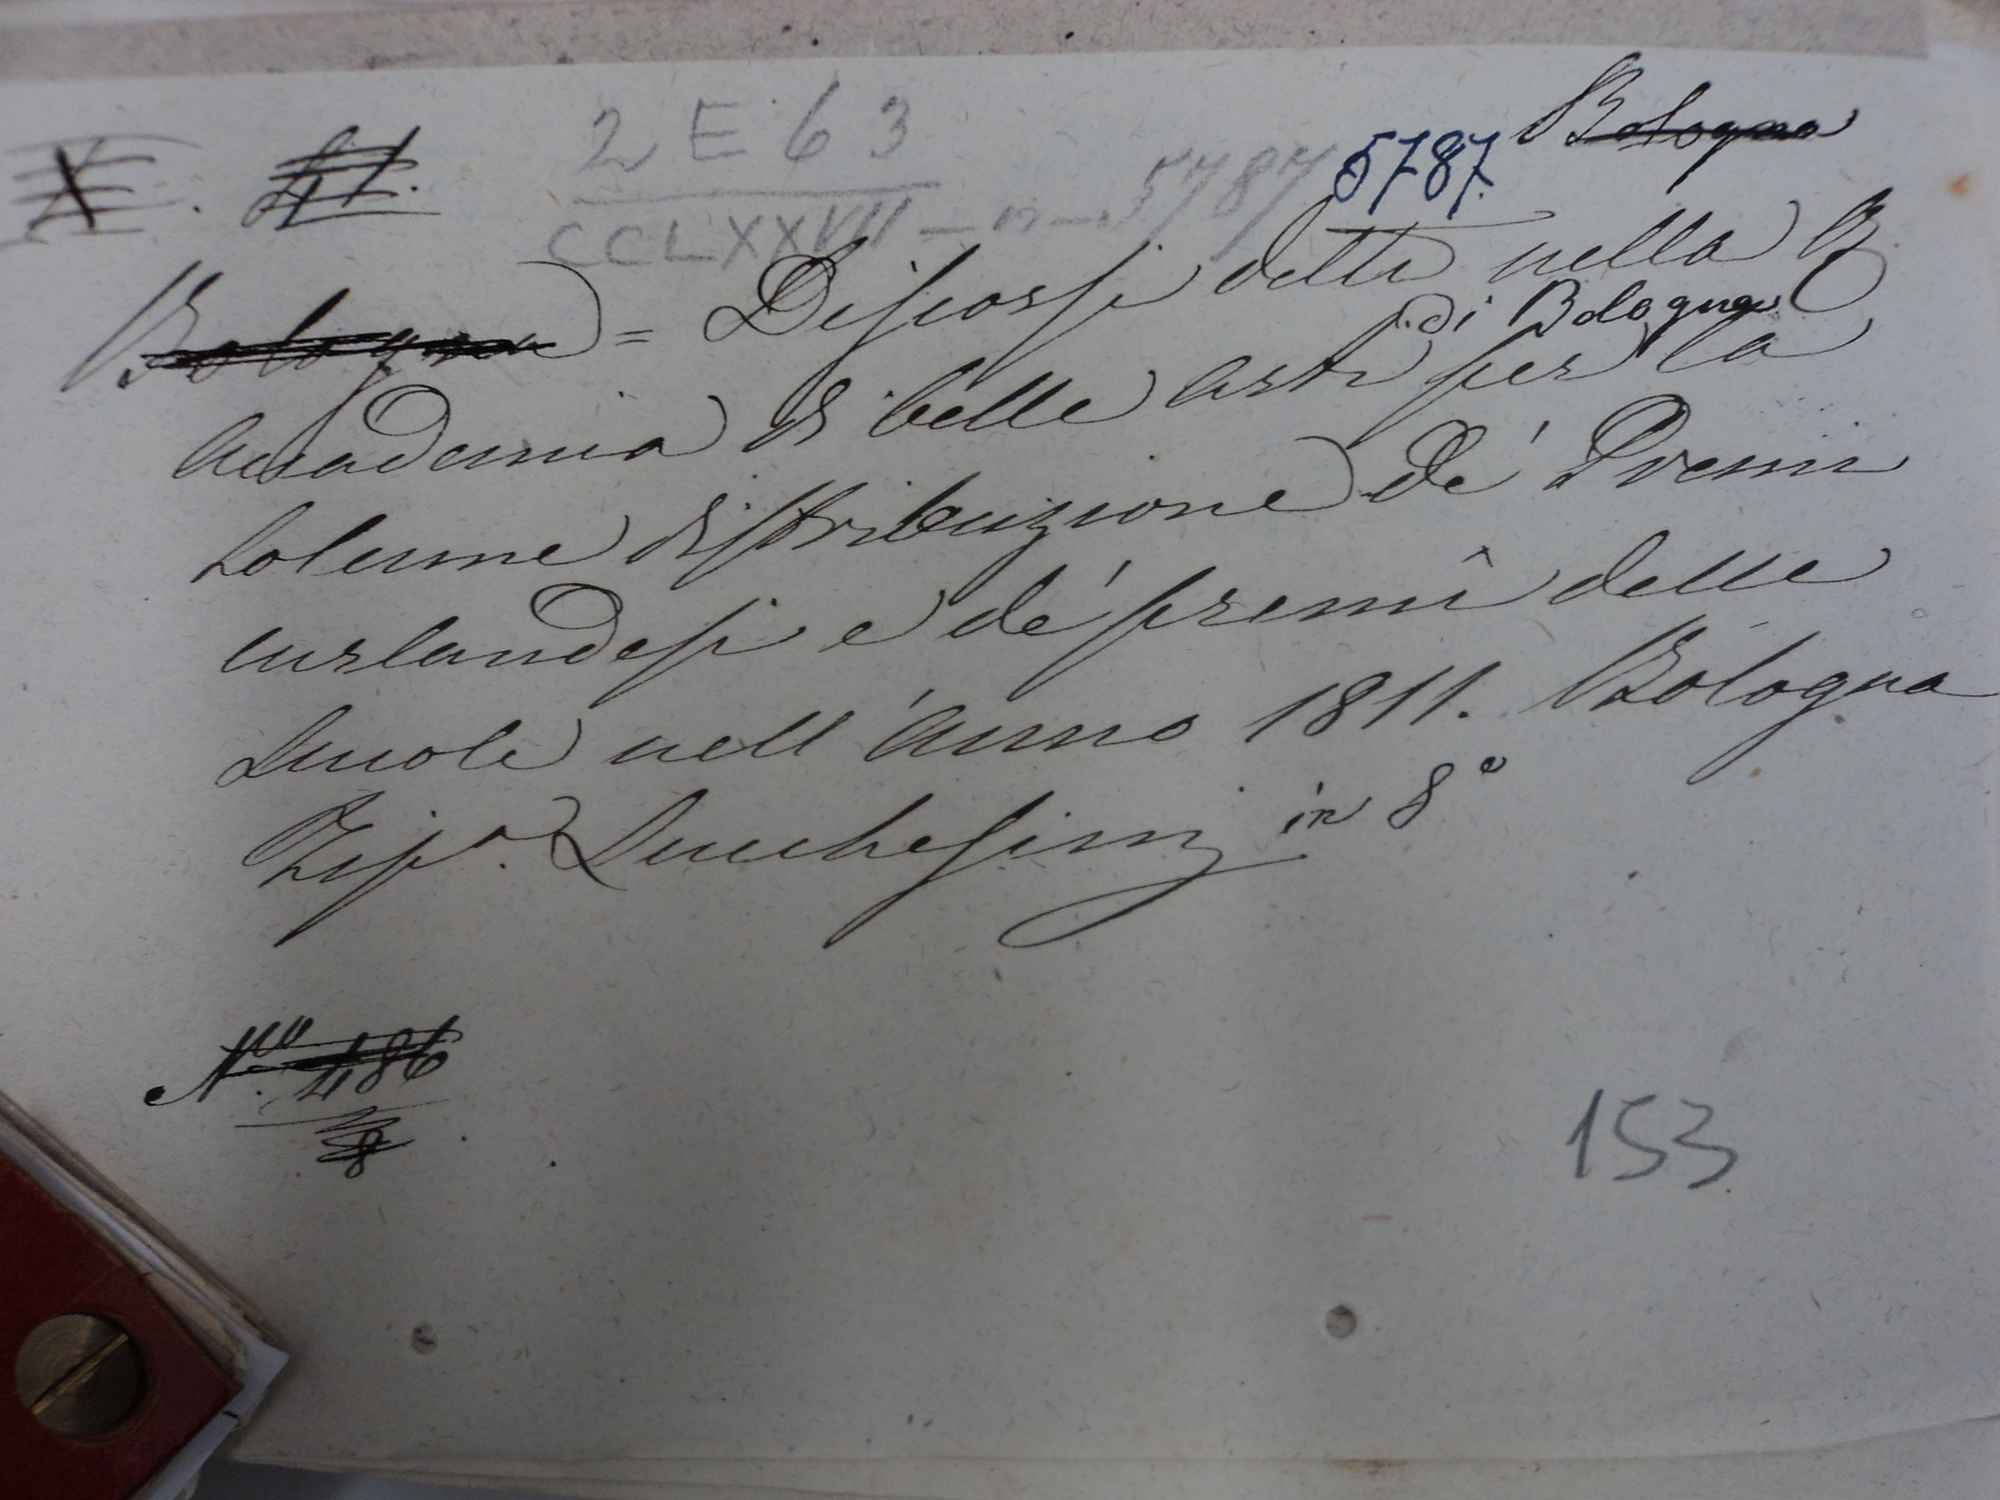 X. 41. 2 E 63 5787. Bologna
CCLXXVII — n — 5787
Bologna = Discorsi detti nella R.
di Bologna
Accademia di belle arti per la
Solenne distribuzione de' Premii
curlandesi e de' premî delle
Scuole nell'anno 1811. Bologna
Tip.a Lucchesini in 8°
N. 486
8
153